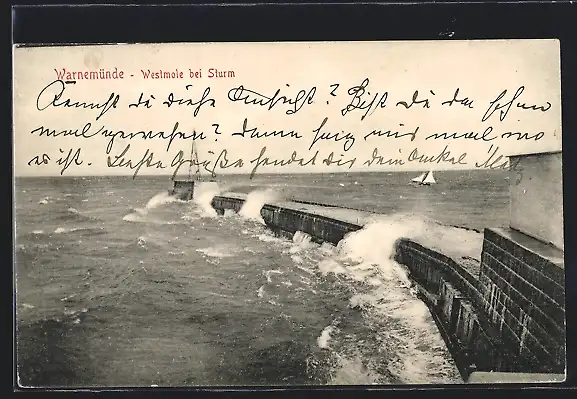 Warnemünde - Westmole bei Sturm
Kennst du diese Ansicht? Bist du da schon
mal gewesen? Dann sag mir mal wo
es ist. Beste Grüße sendet dir dein Onkel